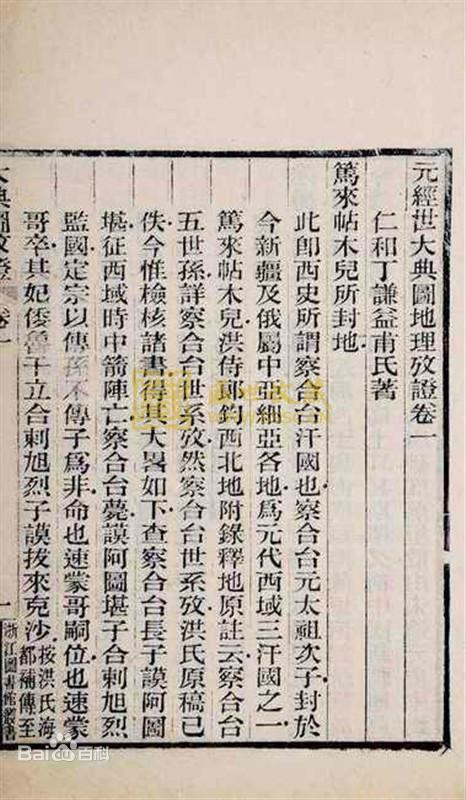 元經世大典圖地理攷證卷一
仁和丁謙益甫氏著
篤來帖木兒所封地
此卽西史所謂察合台汗國也察合台元太祖次子封於
今新疆及俄屬中亞細亞各地爲元代西域三汗國之一
篤來帖木兒洪侍郞鈞西北地附錄釋地原註云察合台
五世孫詳察合台世系攷然察合台世系攷洪氏原稿已
佚今惟檢核諸書得其大畧如下查察合台長子謨阿圖
堪征西域時中箭陣亡察合台薨謨阿圖堪子合剌旭烈
監國定宗以傳孫不傳子爲非命也速蒙哥嗣位也速蒙
哥卒其妃倭魯干立合剌旭烈子謨拔來克沙
按洪氏海
都補傳至
大典圖攷證
卷一
一
浙江圖書館叢書
Bai百科